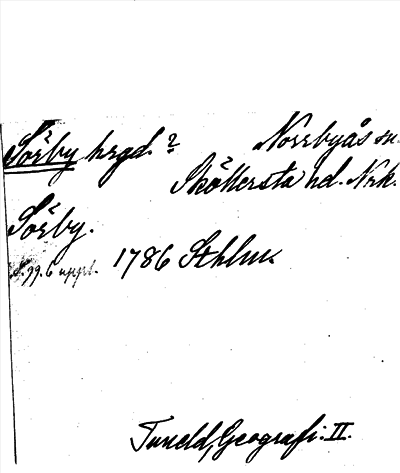 Sörby hrgd. ? Norrbyås sn.
Sköllersta hd. Nrk.
Sörby.
S. 99. 6 uppl. 1786 Sthlm.
Tuneld, Geografi. II.